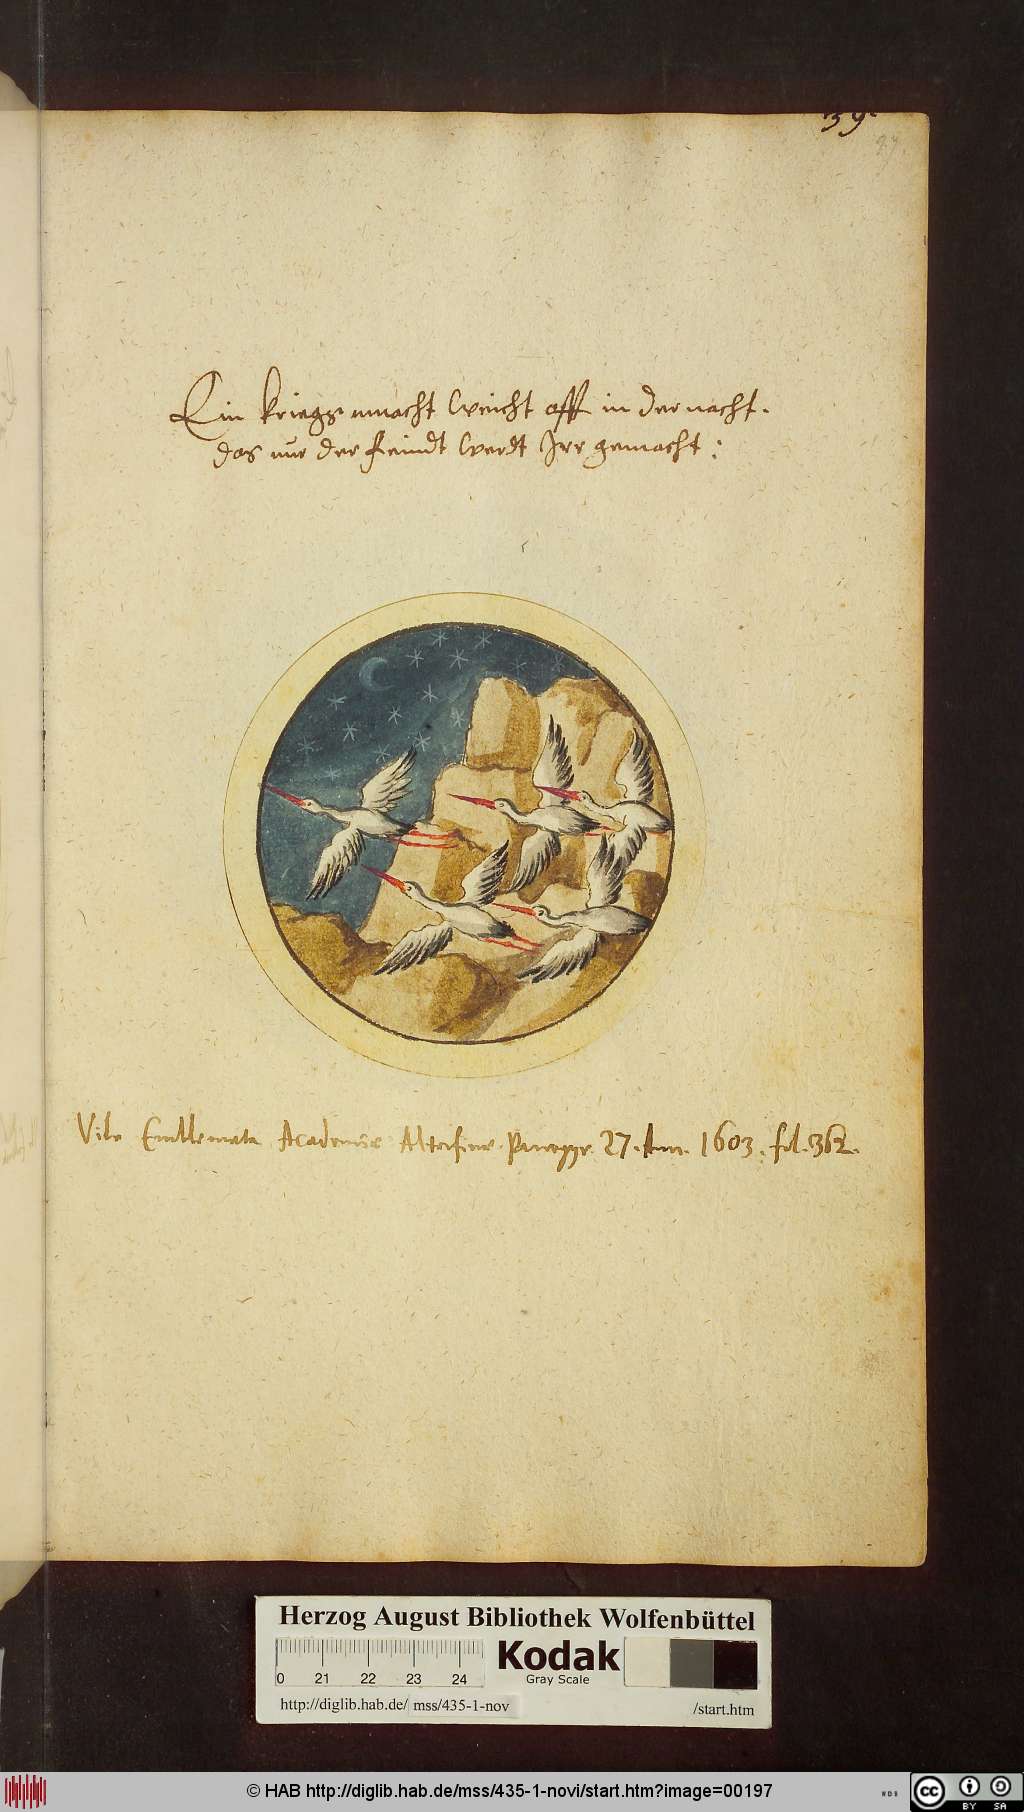 39.
Ein kriegsmacht weicht offt in der nacht.
das nur der feindt werdt Irr gemacht:
Vide Emblemata Academiæ Altorfinæ Panegyr. 27. Ann. 1603. fol. 362.
Herzog August Bibliothek Wolfenbüttel
0 21 22 23 24
Kodak
Gray Scale
http://diglib.hab.de/ mss/435-1-nov /start.htm
© HAB http://diglib.hab.de/mss/435-1-novi/start.htm?image=00197
cc BY SA